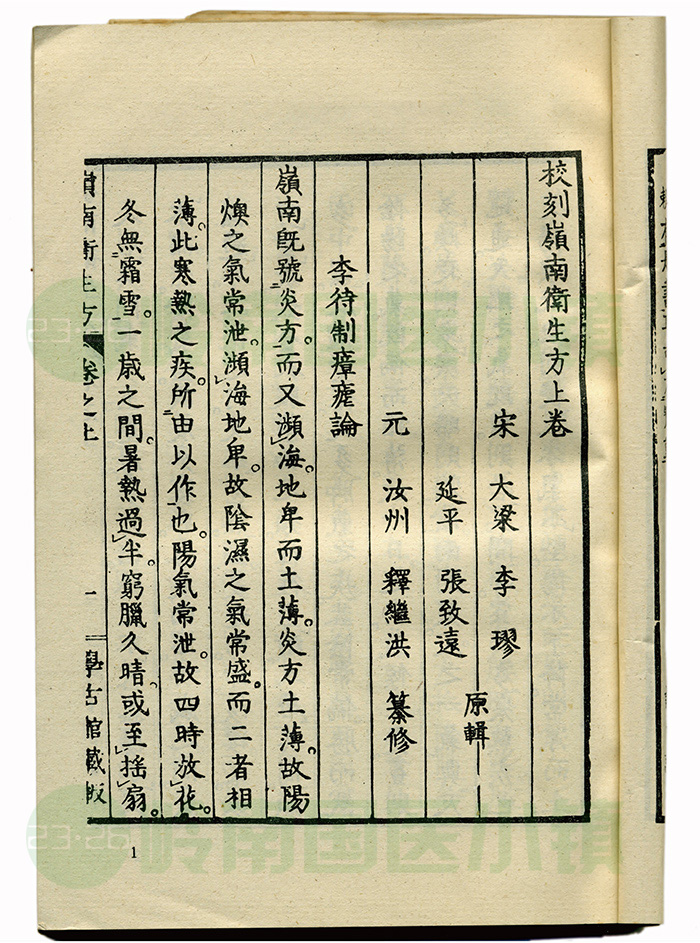 校刻嶺南衛生方上卷
宋 大梁 李 璆
延平 張致遠 原輯
元 汝州 釋繼洪 纂修
李待制瘴瘧論
嶺南既號炎方。而又瀕海。地卑而土薄。炎方土薄。故陽
燠之氣常泄。瀕海地卑。故陰濕之氣常盛。而二者相
薄。此寒熱之疾。所由以作也。陽氣常泄。故四時放花。
冬無霜雪。一歲之間。暑熱過半。窮臘久晴。或至搖扇。
嶺南衛生方 卷之上 一 學古館藏版
1
23·26 岭南国医小镇
23·26 岭南国医小镇